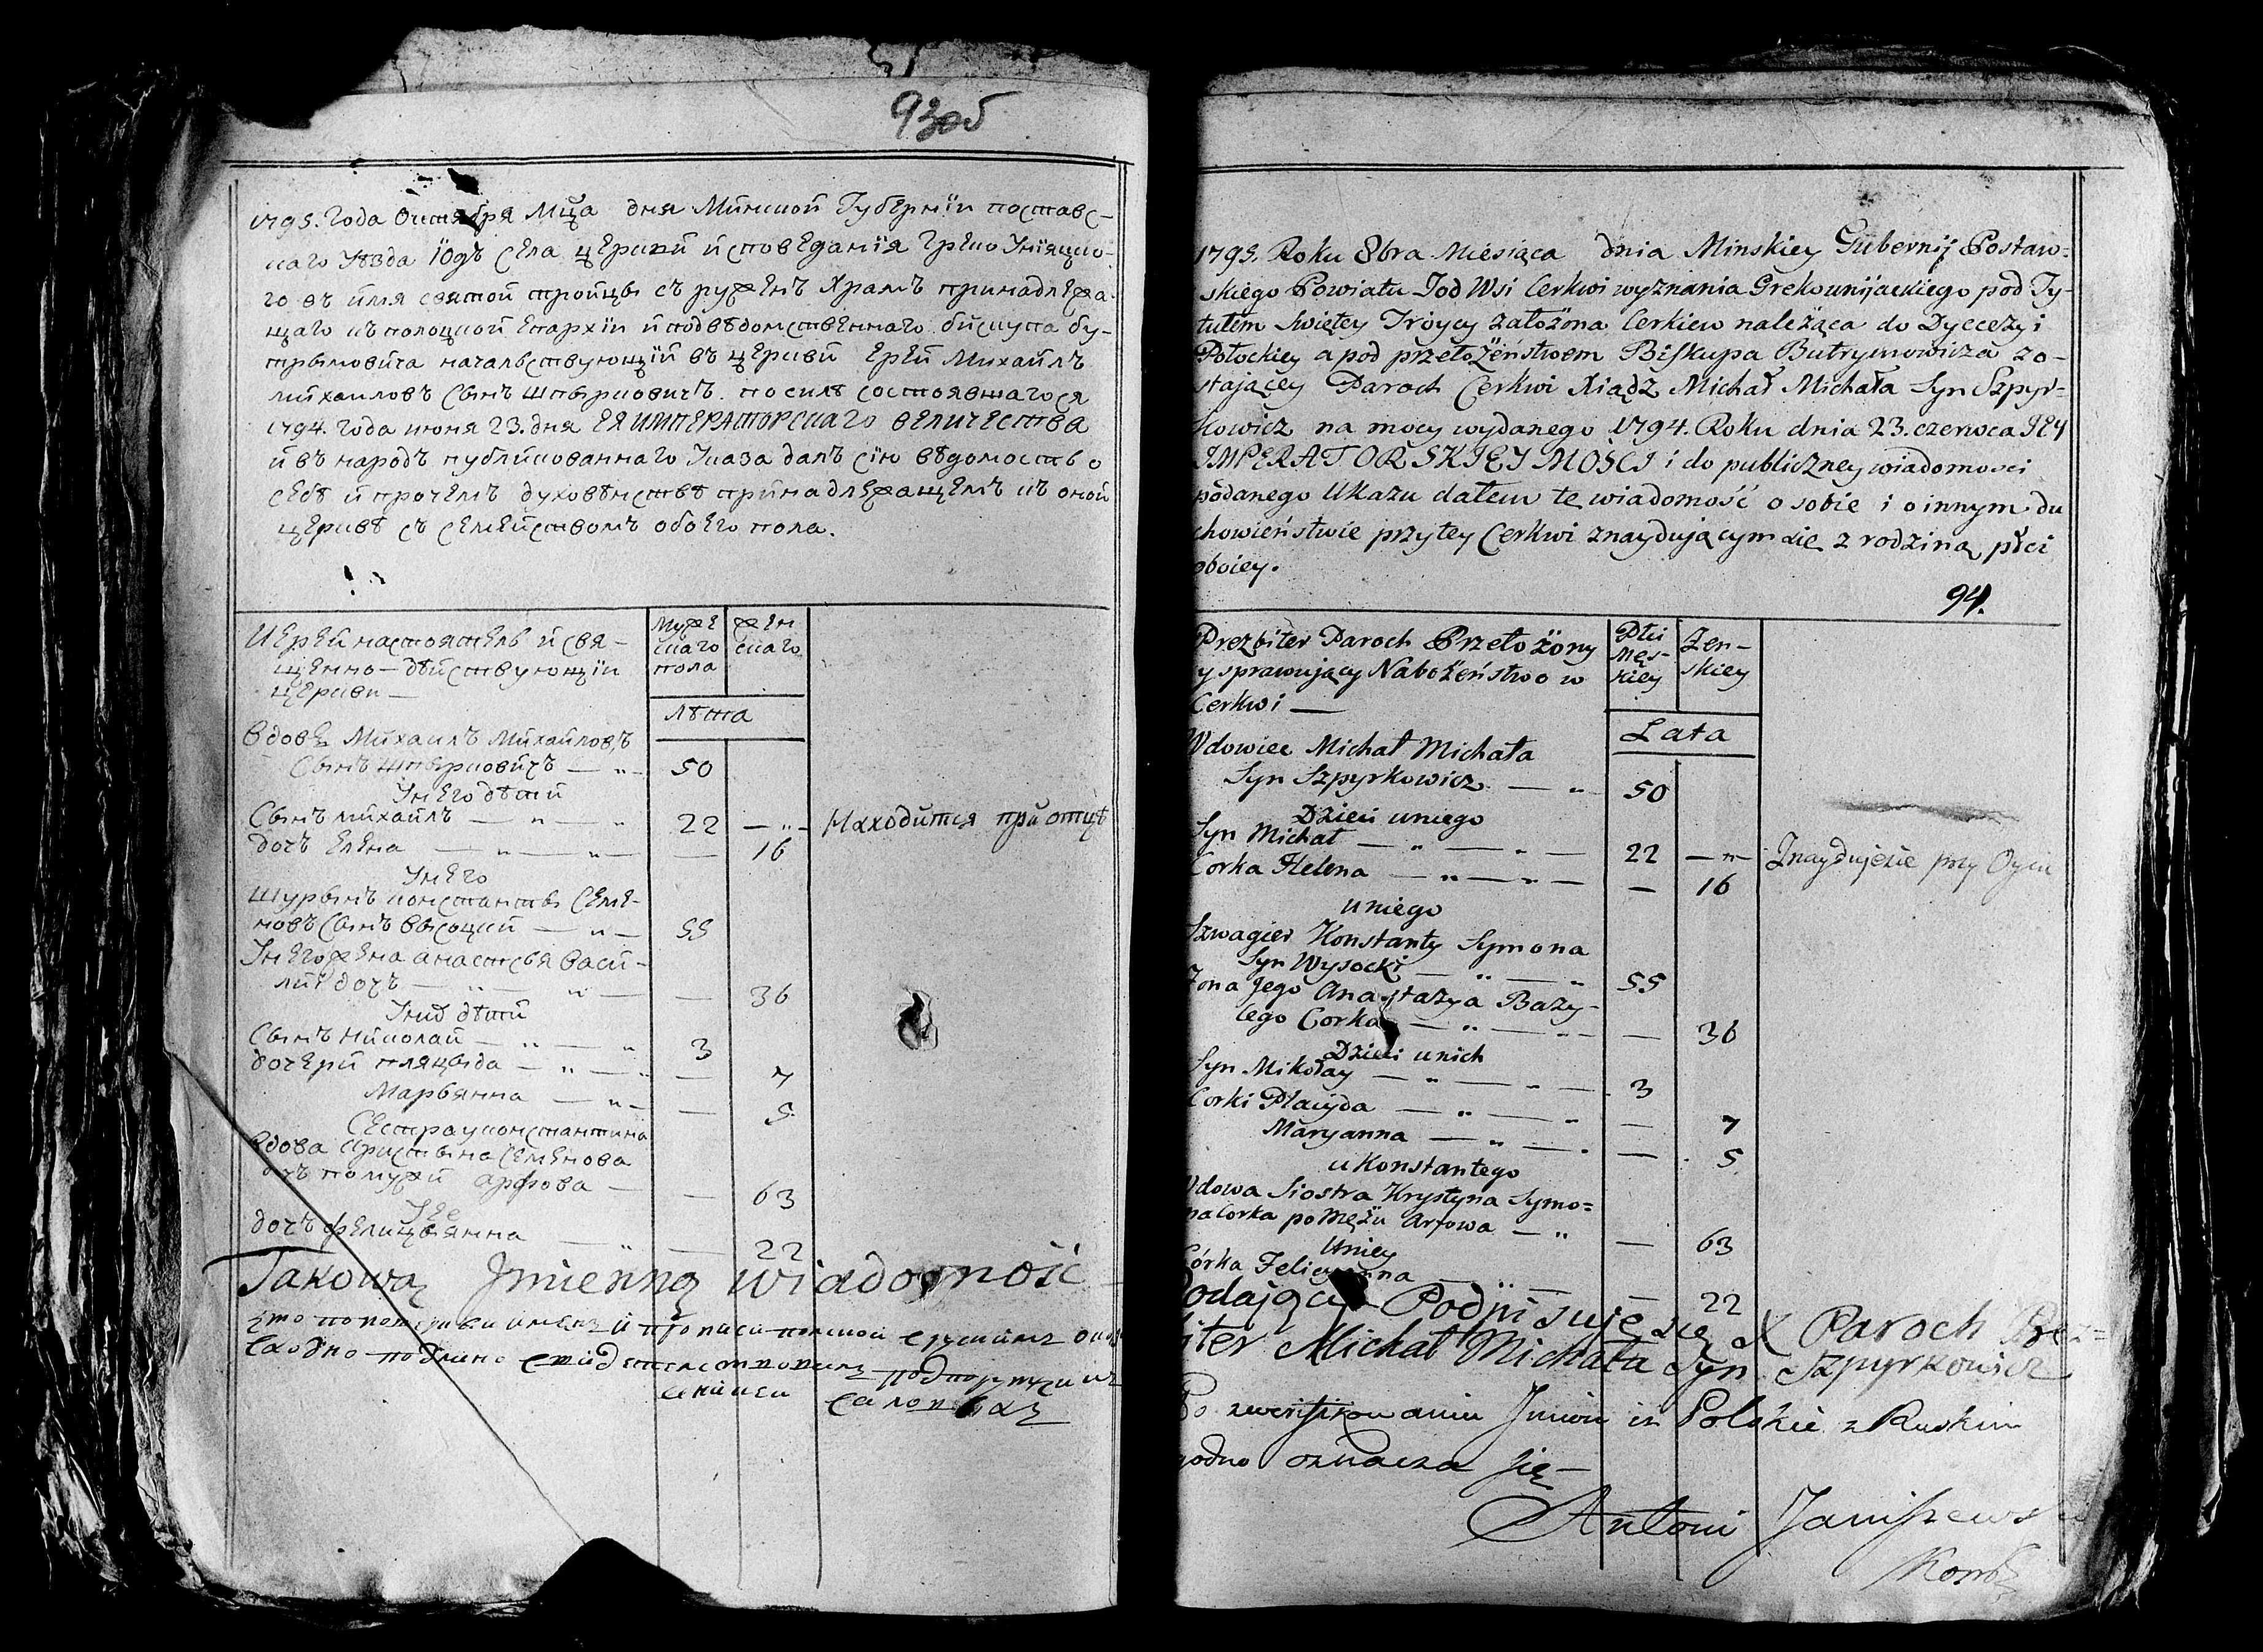 93об
1795. Года Октября Мца дня Минской Губернїи поставс-
каго Уѣзда Іодъ Села церкви исповеданїя Греко Унїяцко-
го въ имя святой тройцы съ руженъ Храмъ принадлежа-
щаго къ полоцкой Епархїи и подвѣдомственнаго бискупа бу-
трымовича начальствующїй въ церкви Ерей Михаилъ
михаиловъ Сынъ шпырковичъ. по силѣ состоявшагося
1794. года июня 23. дня ЕЯ ИМПЕРАТОРСКАГО ВЕЛИЧЕСТВА
и въ народъ публикованнаго Указа далъ сїю вѣдомость о
себѣ и прочемъ духовѣнствѣ принадлежащемъ къ оной
церквѣ съ семействомъ обоего пола.
Иерей настоятель и свя-
щенно-дѣйствующїи
церкви —
Муже
скаго
пола
жен
скаго
лѣта
Вдовец Михаилъ Михайловъ
Сынъ шпырковичъ — „ — 50
У него дѣти
Сынъ михаилъ — „ — „ 22 — „ — Находится при отцѣ
дочь Елена — „ — „ — — 16
У него
Шурынъ константы Семе-
новъ Сынъ высоцкий — „ — 55
У него жена анастсья васи-
лия дочь — „ — „ — — 36
У них дѣти
Сынъ Николай — „ — „ 3
дочери пляцыда — „ — „ — 7
Марьянна — „ — — 5
Сестра у константина
вдова Кристына Семенова
дочь по мужи арфова — — 63
У Ее
дочь фелицыянна — „ — 22
Takową Jmienną wiadomość
1795. Roku 8bra Miesiąca dnia Minskiey Gubernij Postaw-
skiego Powiatu Jod Wsi Cerkwi wyznania Grekounijackiego pod Ty-
tułem Swiętey Troycy założona Cerkiew należąca do Dyecezyi
Połockiey a pod przełożeństwem Biskupa Butrymowicza zo-
stającey Paroch Cerkwi Xiądz Michał Michała Syn Szpyr-
kowicz na mocy wydanego 1794. Roku dnia 23. czerwca JEY
IMPERATORSKIEY MOŚCI i do publiczney wiadomosci
podanego Ukazu dałem te wiadomość o sobie i o innym du
chowieństwie przy tey Cerkwi znaydującym sie z rodziną płci
oboiey.
94.
Prezbiter Paroch Przełożony
y sprawujący Nabożeństwo w
Cerkwi —
Płci
Męs-
kiey
Żen-
skiey
Lata
Wdowiec Michał Michała
Syn Szpyrkowicz — „ 50
Dzieci u niego
Syn Michał — „ — „ — 22 — „ — Znayduje sie przy Oycu
Corka Helena — „ — „ — — 16
u niego
Szwagier Konstanty Symona
Syn Wysocki — „ — „ 55
Żona Jego Anastazya Bazy-
lego Corka — „ — „ — — 36
Dzieci u nich
Syn Mikołay — „ — „ — 3
Corki Placyda — „ — „ — 7
Maryanna — „ — „ — 5
u Konstantego
Wdowa Siostra Krystyna Symo-
na Corka po Mężu Arfowa — „ — 63
U niey
Córka Felicyanna — „ — 22
Podający Podpisuje się X Paroch Prez-
biter Michał Michała Syn Szpyrkowicz
Po zweryfikowaniu Jmion iż Polskie z Ruskim
zgodno oznacza się —
Antoni